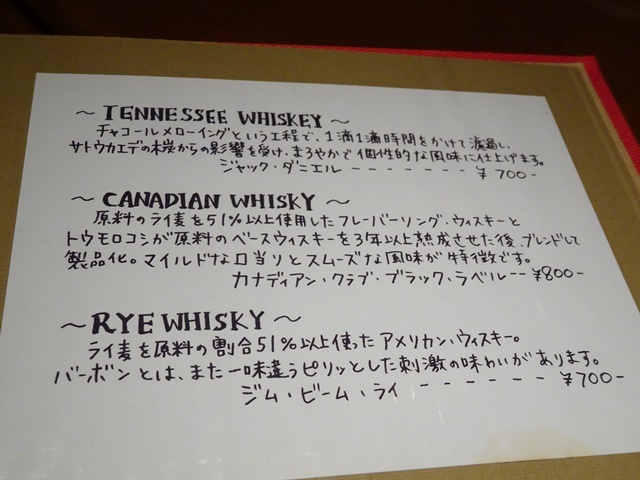 ～TENNESSEE WHISKEY～
チャコールメローイングという工程で、1滴1滴時間をかけて濾過し、
サトウカエデの木炭からの影響を受け、まろやかで個性的な風味に仕上げます。
ジャック・ダニエル ------- ¥700-
～CANADIAN WHISKY～
原料のライ麦を51%以上使用したフレーバーリング・ウィスキーと
トウモロコシが原料のベースウィスキーを3年以上熟成させた後、ブレンドして
製品化。マイルドな口当りとスムーズな風味が特徴です。
カナディアン・クラブ・ブラック・ラベル-- ¥800-
～RYE WHISKY～
ライ麦を原料の割合51%以上使ったアメリカン・ウィスキー。
バーボンとは、また一味違うピリッとした刺激の味わいがあります。
ジム・ビーム・ライ ------ ¥700-